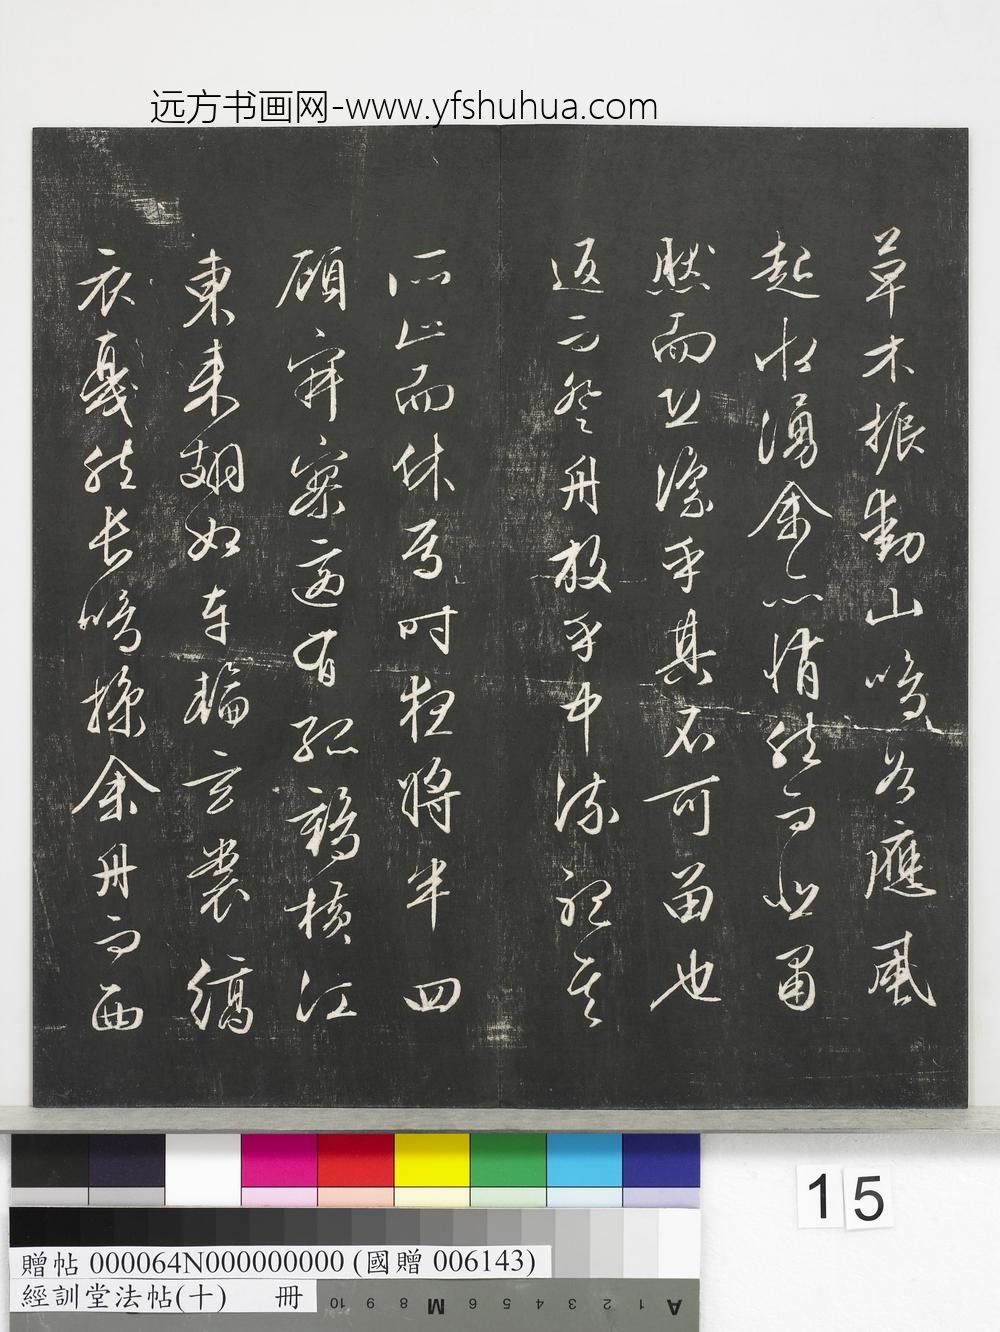 远方书画网-www.yfshuhua.com
草木振動山鳴谷應風
起水湧余亦悄然而悲肅
然而恐凜乎其不可留也
返而登舟放乎中流聽其
所止而休焉時夜將半四
顧寂寥適有孤鶴橫江
東來翅如車輪玄裳縞
衣戛然長鳴掠余舟而西
15
贈帖 000064N000000000 (國贈 006143)
經訓堂法帖(十) 冊
10 9 8 M 6 5 4 3 2 1 A